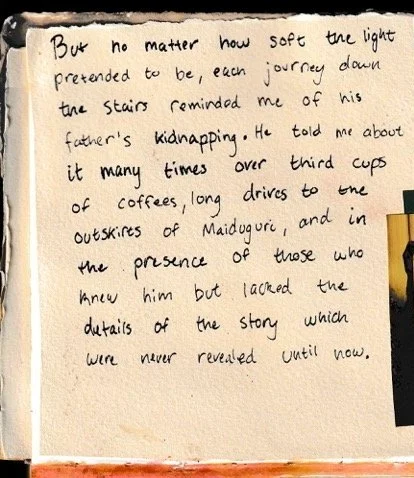 But no matter how soft the light
pretended to be, each journey down
the stairs reminded me of his
father's kidnapping. He told me about
it many times over third cups
of coffees, long drives to the
outskires of Maiduguri, and in
the presence of those who
knew him but lacked the
details of the story which
were never revealed until now.